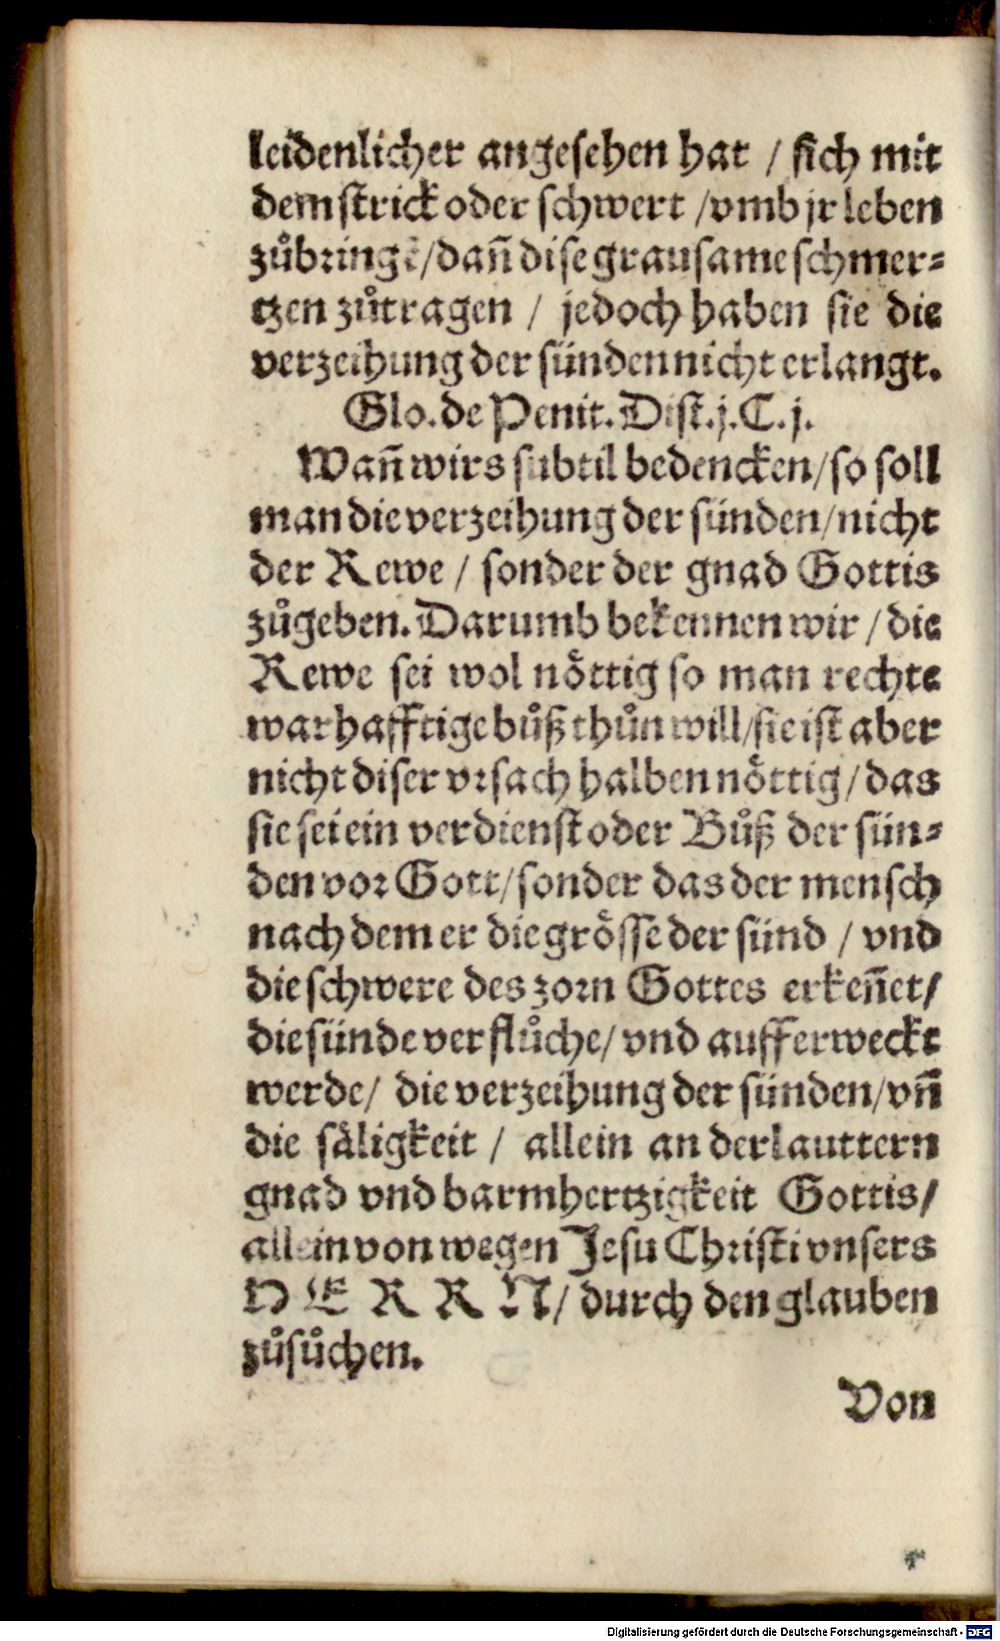 leidenlicher angesehen hat / sich mit
dem strick oder schwert / vmb jr leben
zůbringẽ / dañ dise grausame schmer-
tzen zůtragen / jedoch haben sie die
verzeihung der sünden nicht erlangt.
Glo. de Penit. Dist. j. C. j.
Wañ wirs subtil bedencken / so soll
man die verzeihung der sünden / nicht
der Rewe / sonder der gnad Gottis
zůgeben. Darumb bekennen wir / die
Rewe sei wol nöttig so man rechte
warhafftige bůß thůn will / sie ist aber
nicht diser vrsach halben nöttig / das
sie sei ein verdienst oder Bůß der sün-
den vor Gott / sonder das der mensch
nach dem er die grösse der sünd / vnd
die schwere des zorn Gottes erkeñet /
die sünde verflůche / vnd aufferweckt
werde / die verzeihung der sünden / vñ
die säligkeit / allein an der lauttern
gnad vnd barmhertzigkeit Gottis /
allein von wegen Jesu Christi vnsers
HERRN / durch den glauben
zůsůchen.
Von
Digitalisierung gefördert durch die Deutsche Forschungsgemeinschaft - DFG